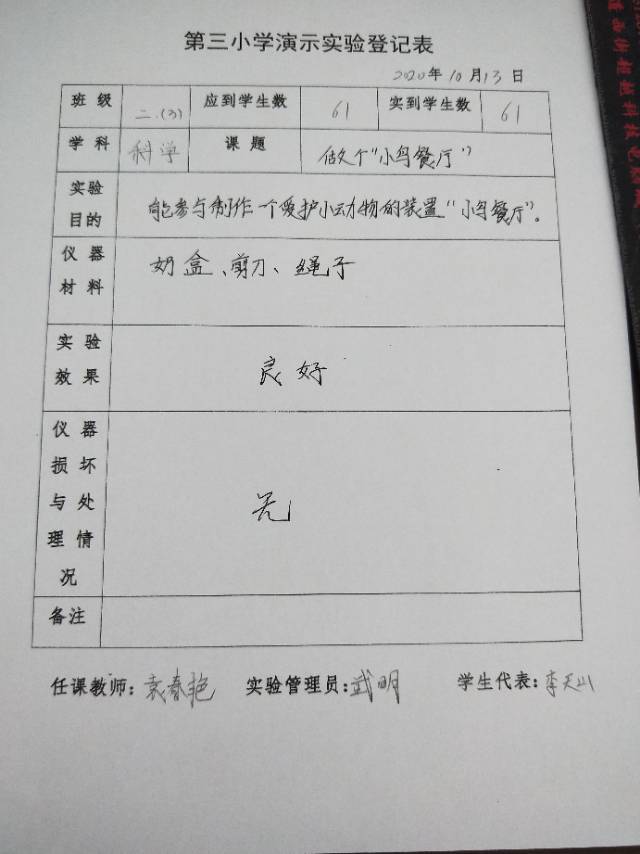 第三小学演示实验登记表
2020年10月13日
班级 二.(3) 应到学生数 61 实到学生数 61
学科 科学 课题 做个"小鸟餐厅"
实验目的 能参与制作一个爱护小动物的装置"小鸟餐厅"。
仪器材料 奶盒、剪刀、绳子
实验效果 良好
仪器损坏与处理情况 无
备注
任课教师:袁春艳 实验管理员:武明 学生代表:李天山